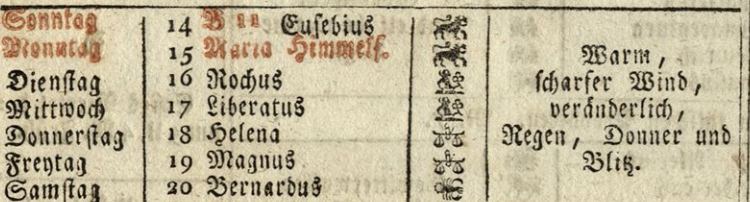 Sonntag 14 B Eusebius
Montag 15 Maria Himmelf. Warm,
Dienstag 16 Rochus scharfer Wind,
Mittwoch 17 Liberatus veränderlich,
Donnerstag 18 Helena Regen, Donner und
Freytag 19 Magnus Blitz.
Samstag 20 Bernardus